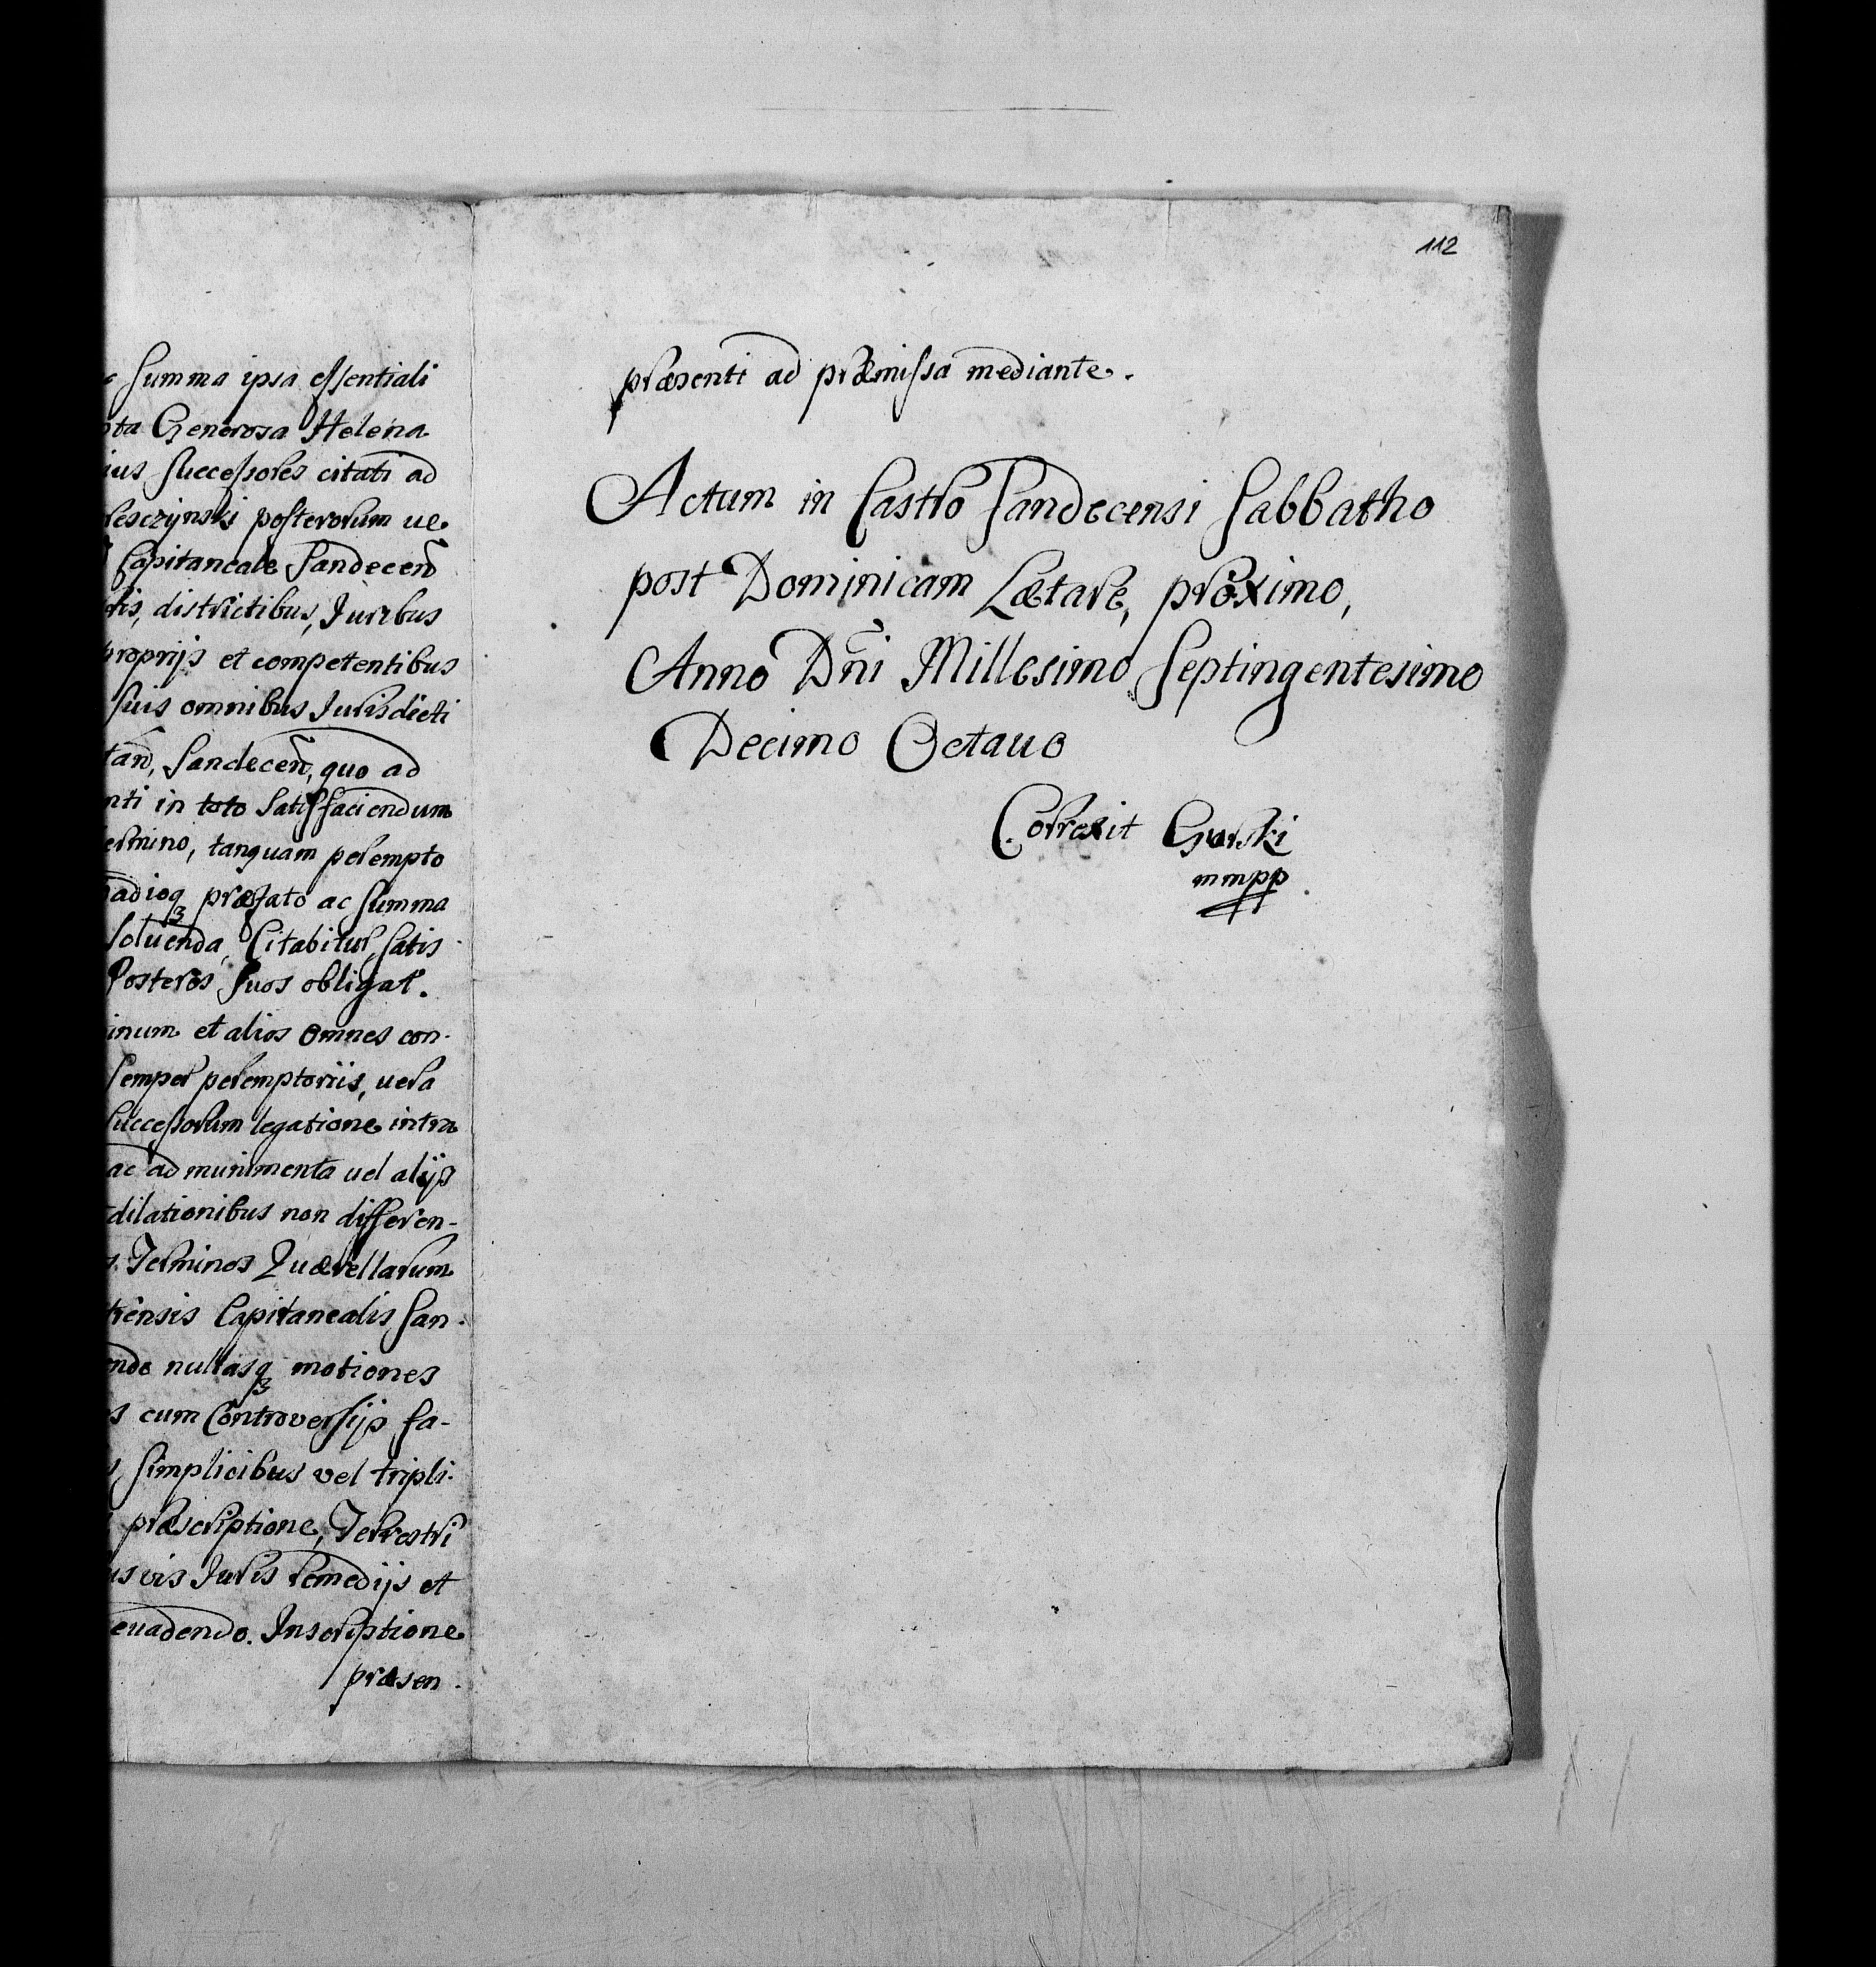 summa ipsa essentiali
Generosa Helena
successores citati ad
posterorum ue
Capitaneale Sandeceñ
districtibus, Juribus
proprijs et competentibus
suis omnibus Jurisdicti
Sandeceñ, quo ad
in toto satisfaciendum
tanquam perempto
præfato ac summa
soluenda, Citabitur, satis
Posteros suos obligat.
et alios omnes con-
semper peremptoriis, uera
successorum legatione intra
ac ad munimenta uel alijs
dilationibus non differen-
Terminos Quærellarum
Capitanealis San-
nullasq₃ motiones
cum Controversijs fa-
simplicibus vel tripli-
præscriptione, Terrestri
vis Juris remedijs et
euadendo. Inscriptione
præsen-
112
præsenti ad præmissa mediante.
Actum in Castro Sandecensi Sabbatho
post Dominicam Lætare, proximo,
Anno Dñi Millesimo Septingentesimo
Decimo Octauo
Correxit Gorski
mmpp